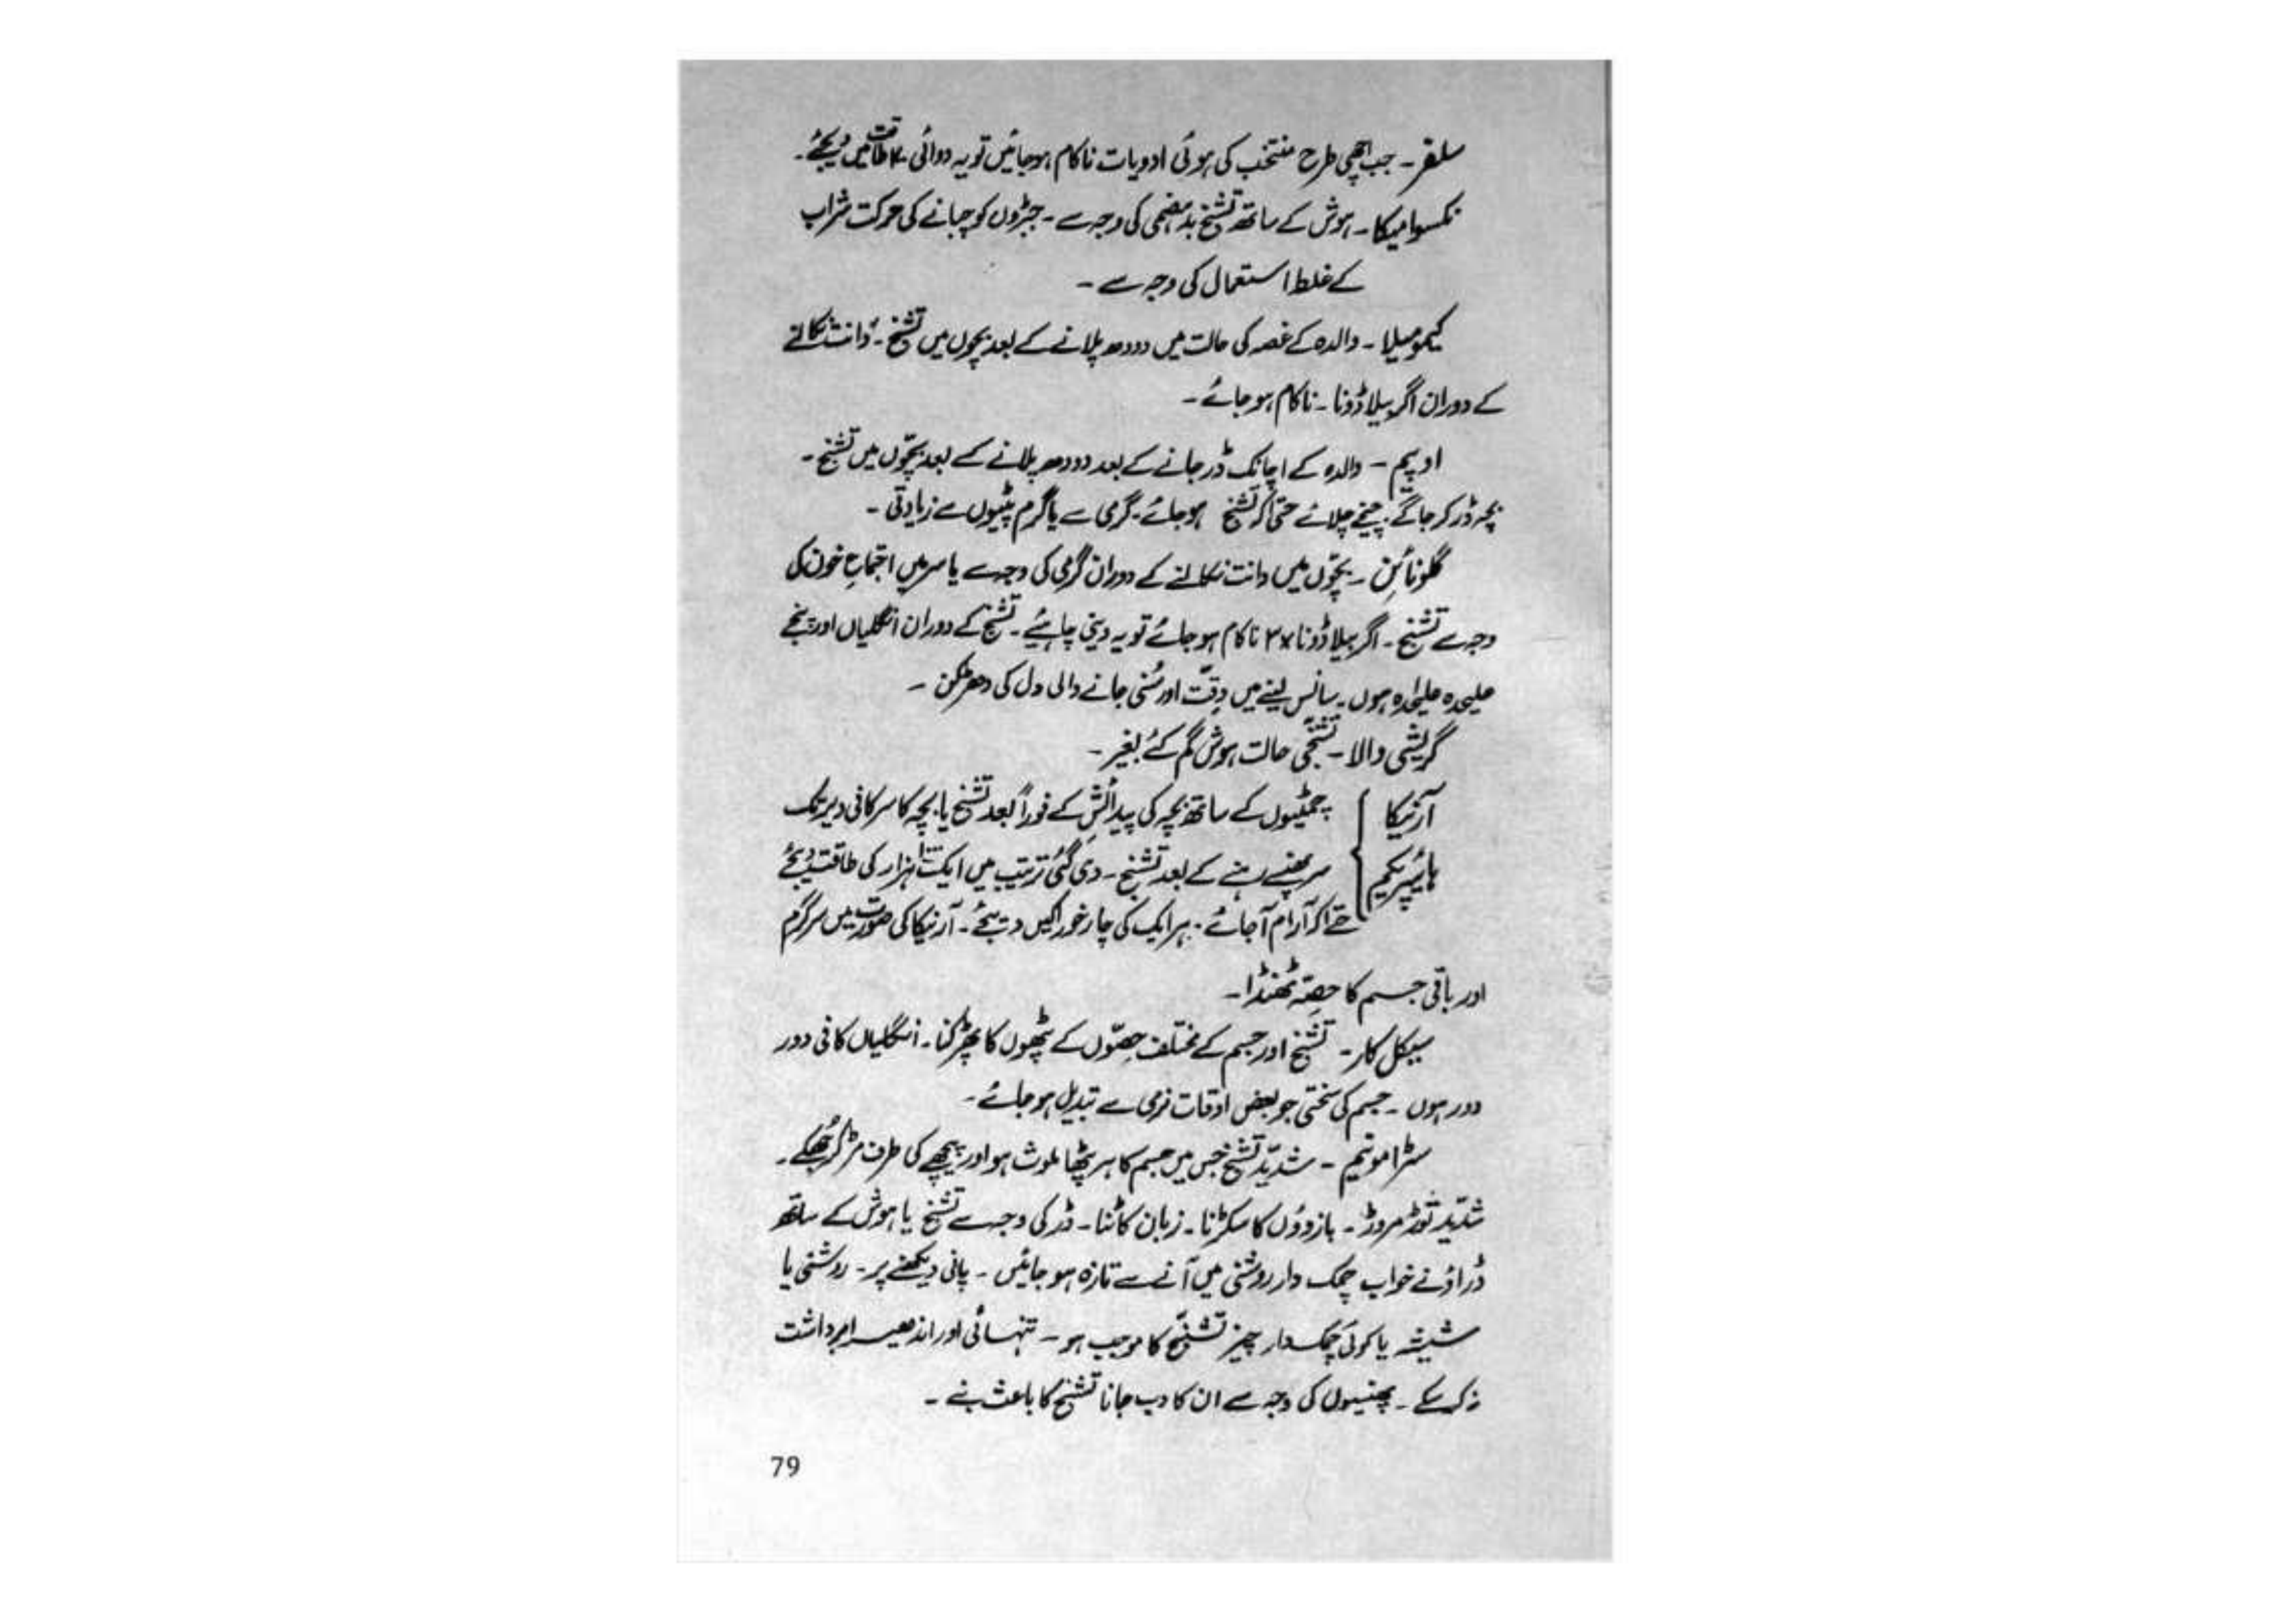 سلفر ۔ جب اچھی طرح منتخب کی ہوئی ادویات ناکام ہوجائیں تو یہ دوائی طاقت میں دیجئے۔
نکسوامیکا ۔ ہوش کے ساتھ تشنج بدہضمی کی وجہ سے ۔ جبڑوں کو چبانے کی حرکت شراب
کے غلط استعمال کی وجہ سے ۔
کیموमیلا ۔ والدہ کے غصہ کی حالت میں دودھ پلانے کے بعد بچوں میں تشنج ۔ دانت نکالنے
کے دوران اگر بیلاڈونا ۔ ناکام ہو جائے ۔
اوپیم ۔ والدہ کے اچانک ڈر جانے کے بعد دودھ پلانے کے بعد بچّوں میں تشنج ۔
بچہ ڈر کر جاگے ۔ چیخے چلائے حتیٰ کہ تشنج ہو جائے ۔ گرمی سے یا گرم پٹیوں سے زیادتی ۔
گلونائن ۔ بچّوں میں دانت نکالنے کے دوران گرمی کی وجہ سے یا سر میں اجتماعِ خون کی
وجہ سے تشنج ۔ اگر بیلاڈونا ۳x ناکام ہو جائے تو یہ دینی چاہیئے ۔ تشنج کے دوران انگلیاں اور پنجے
علیحدہ علیحدہ ہوں ۔ سانس لینے میں دِقّت اور سُنی جانے والی دل کی دھڑکن ۔
گریشی والا ۔ تشنّجی حالت ہوش گم کئے بغیر ۔
آرنیکا چمٹیوں کے ساتھ بچہ کی پیدائش کے فوراً بعد تشنج یا بچہ کا سر کافی دیر تک
ہائیپریکم سر پھنسے رہنے کے بعد تشنج ۔ دی گئی ترتیب میں ایک ہزار کی طاقت دیجئے
حتےٰ کہ آرام آجائے ۔ ہر ایک کی چار خوراکیں دیجئے ۔ آرنیکا کی صورت میں سر گرم
اور باقی جسم کا حصّہ ٹھنڈا ۔
سیکل کار ۔ تشنج اور جسم کے مختلف حصّوں کے پٹھوں کا پھڑکنا ۔ انگلیاں کافی دور
دور ہوں ۔ جسم کی سختی جو بعض اوقات نرمی سے تبدیل ہو جائے ۔
سٹرامونیم ۔ شدید تشنج جس میں جسم کا ہر پٹھا ملوث ہو اور پیچھے کی طرف مڑ کر جُھکے ۔
شدید توڑ مروڑ ۔ بازوؤں کا سکڑنا ۔ زبان کاٹنا ۔ ڈر کی وجہ سے تشنج یا ہوش کے ساتھ
ڈراؤنے خواب چمک دار روشنی میں آنے سے تازہ ہو جائیں ۔ پانی دیکھنے پر ۔ روشنی یا
شیشہ یا کوئی چمکدار چیز تشنّج کا موجب ہو ۔ تنہائی اور اندھیرا برداشت
نہ کر سکے ۔ پھنسیوں کی وجہ سے ان کا دب جانا تشنج کا باعث بنے ۔
79